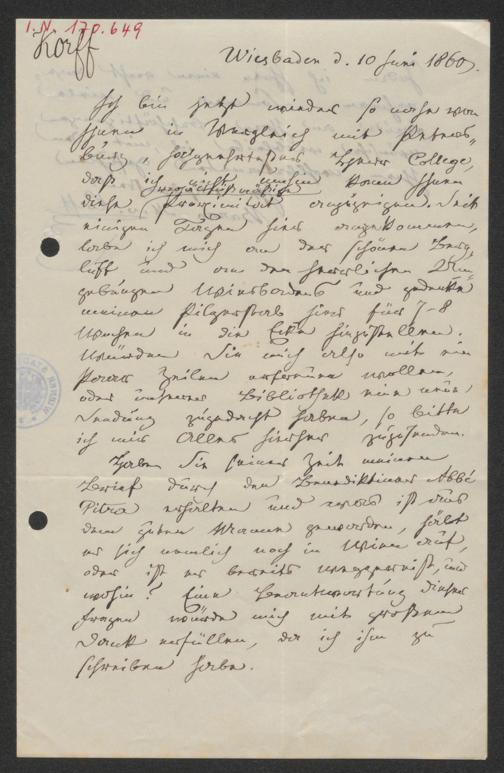 I.N. 170.649
Korff
Wiesbaden d. 10 Juni 1860.
Ich bin jetzt wieder so nahe von
Ihnen im Vergleich mit Peters-
burg, hochgeehrtester Herr College,
daß ich nicht umhin kann Ihnen
diese Proximität anzuzeigen. Seit
einigen Tagen hier angekommen,
labe ich mich an der schönen Berg-
luft und an den herrlichen Um-
gebungen Wiesbadens und gedenke
meinen Pilgerstab hier für 7-8
Wochen in die Ecke hinzustellen.
Würden Sie mich also mit ein
Paar Zeilen erfreuen wollen,
oder unserer Bibliothek eine neue
Sendung zugedacht haben, so bitte
ich mir Alles hierher zuzusenden.
Haben Sie seiner Zeit meinen
Brief durch den Benediktiner Abbé
Pitra erhalten und was ist aus
dem guten Manne geworden, hält
er sich nemlich noch in Wien auf,
oder ist er bereits weggereist, und
wohin? Eine Beantwortung dieser
Fragen würde mich mit großem
Dank erfüllen, da ich ihm zu
schreiben habe.